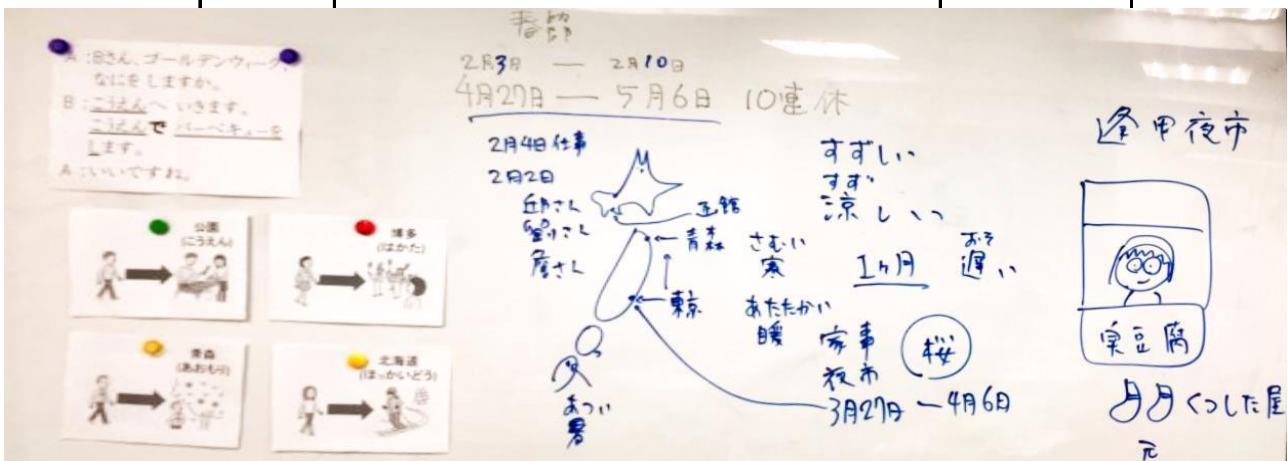 A:Bさん、ゴールデンウィーク、
なにをしますか。
B:こうえんへ いきます。
こうえんで バーベキューを
します。
A:いいですね。
公園
(こうえん)
博多
(はかた)
青森
(あおもり)
北海道
(ほっかいどう)
春節
2月3日 ― 2月10日
4月27日 ― 5月6日 10連休
2月4日 仕事
2月2日
丘さん
詹さん
函館
青森
東京
さむい
寒
あたたかい
暖
あつい
暑
すずしい
すず
涼しい
1ヶ月
おそ
遅い
家事
夜市
桜
3月27日 ― 4月6日
逢甲夜市
臭豆腐
くつした屋
元